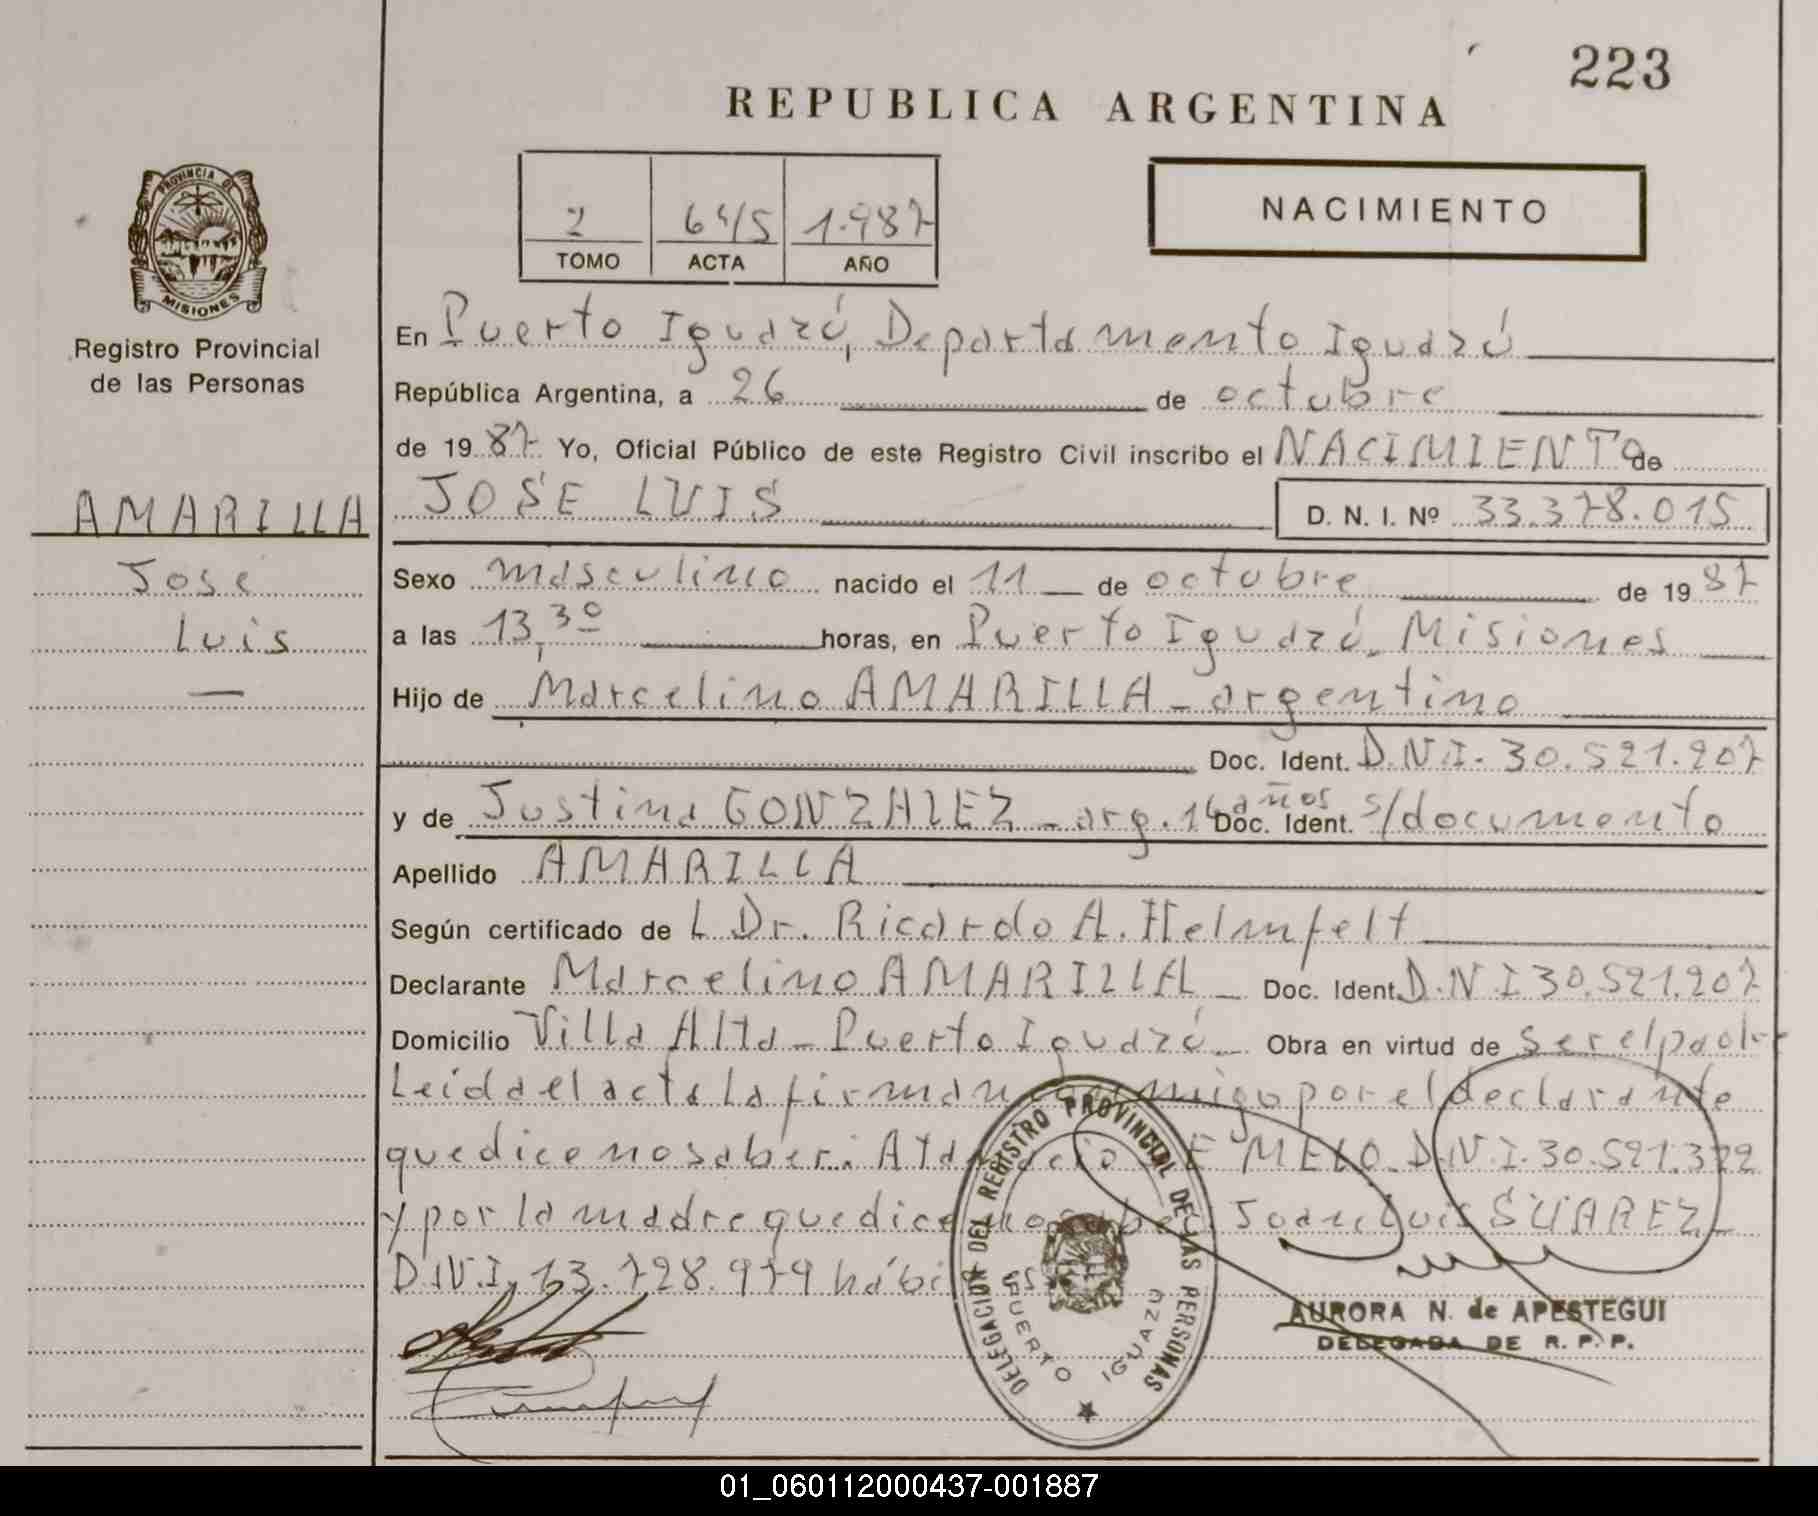 223
REPUBLICA ARGENTINA
NACIMIENTO
2 645 1.987
TOMO ACTA AÑO
PROVINCIA DE
MISIONES
Registro Provincial
de las Personas
AMARILLA
José
Luis
En Puerto Iguazú, Departamento Iguazú
República Argentina, a 26 de octubre
de 1987 Yo, Oficial Público de este Registro Civil inscribo el NACIMIENTO de
JOSÉ LUIS D. N. I. Nº 33.378.015
Sexo masculino nacido el 11 de octubre de 1987
a las 13,30 horas, en Puerto Iguazú, Misiones
Hijo de Marcelino AMARILLA - argentino
Doc. Ident. D.N.I. 30.521.207
y de Justina GONZALEZ - arg. 14 años Doc. Ident. s/documento
Apellido AMARILLA
Según certificado de L Dr. Ricardo A. Helmfelt
Declarante Marcelino AMARILLA - Doc. Ident. D.N.I 30.521.207
Domicilio Villa Alta - Puerto Iguazú - Obra en virtud de ser el padre
Leída el acta la firman conmigo por el declarante
que dice no saber: DE MELO D.N.I. 30.521.322
y por la madre que dice no saber Juan Luis SUAREZ -
D.N.I. 13.728.979 hábiles
DELEGACION DEL REGISTRO PROVINCIAL DE LAS PERSONAS
PUERTO IGUAZU
AURORA N. de APESTEGUI
DELEGADA DE R. P. P.
01_060112000437-001887